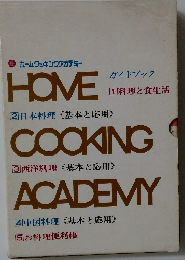 ホームクッキングアカデミー
HOME
ガイドブック
1料理と食生活
2日本料理《基本と応用》
COOKING
3西洋料理《基本と応用》
ACADEMY
4中国料理《基本と応用》
5お料理便利帳